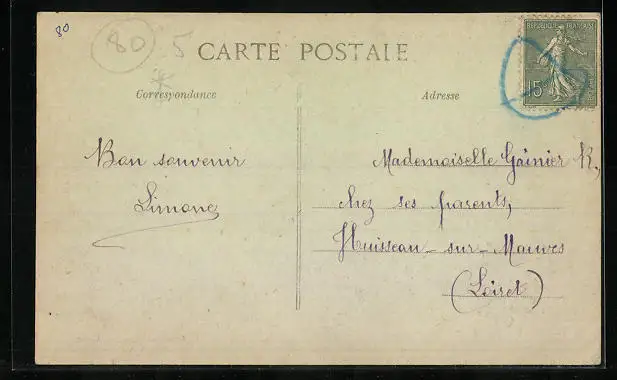 80
80
5
CARTE POSTALE
REPUBLIQUE FRANÇAISE
15c
Correspondance
Adresse
Bon souvenir
Simone
Mademoiselle Gainier R,
chez ses parents,
Huisseau-sur-Mauves
(Loiret)